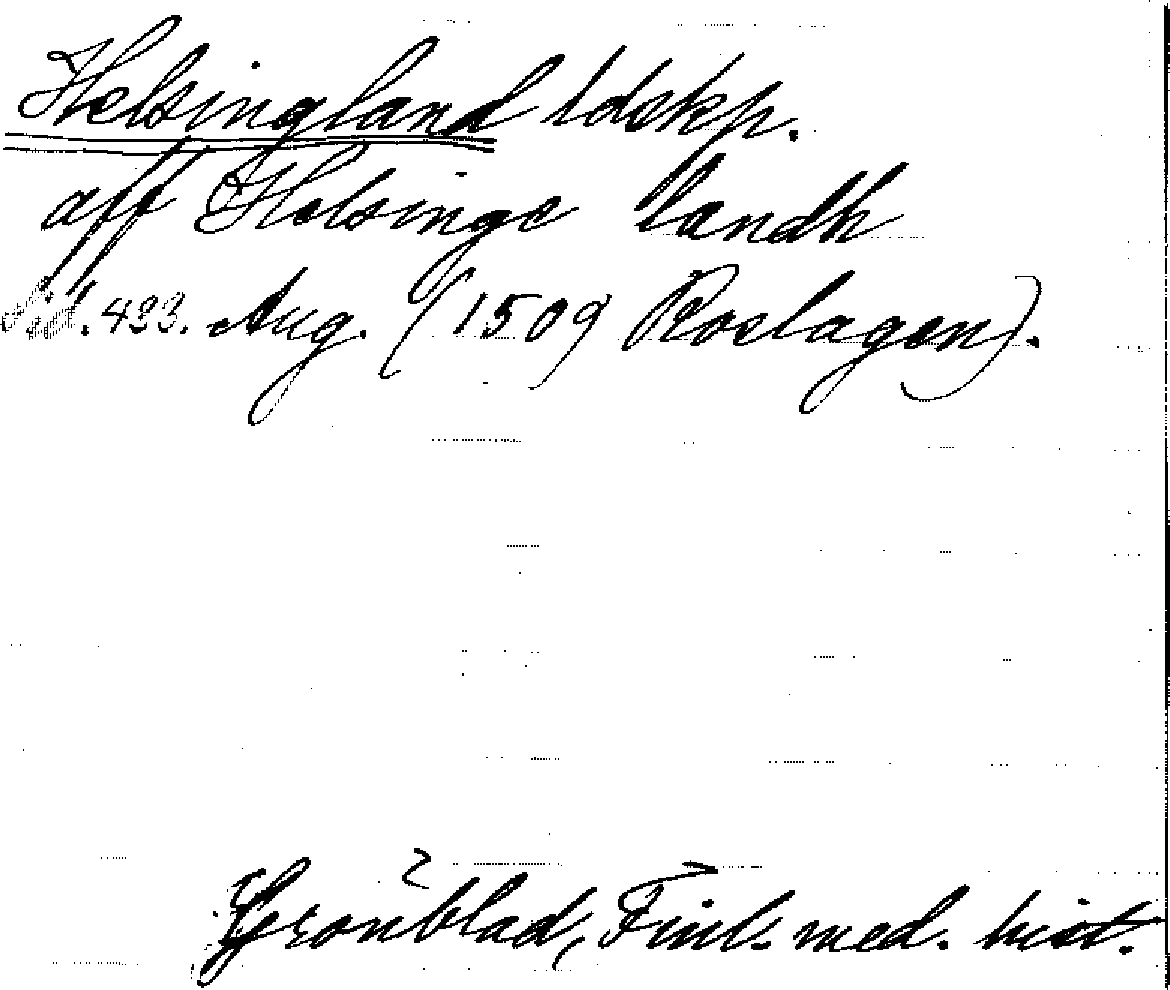 Helsingland ldskp.
aff Helsinge landh
sid. 423. Aug. (1509 Roslagen).
Grönblad, Finl. med. hist.